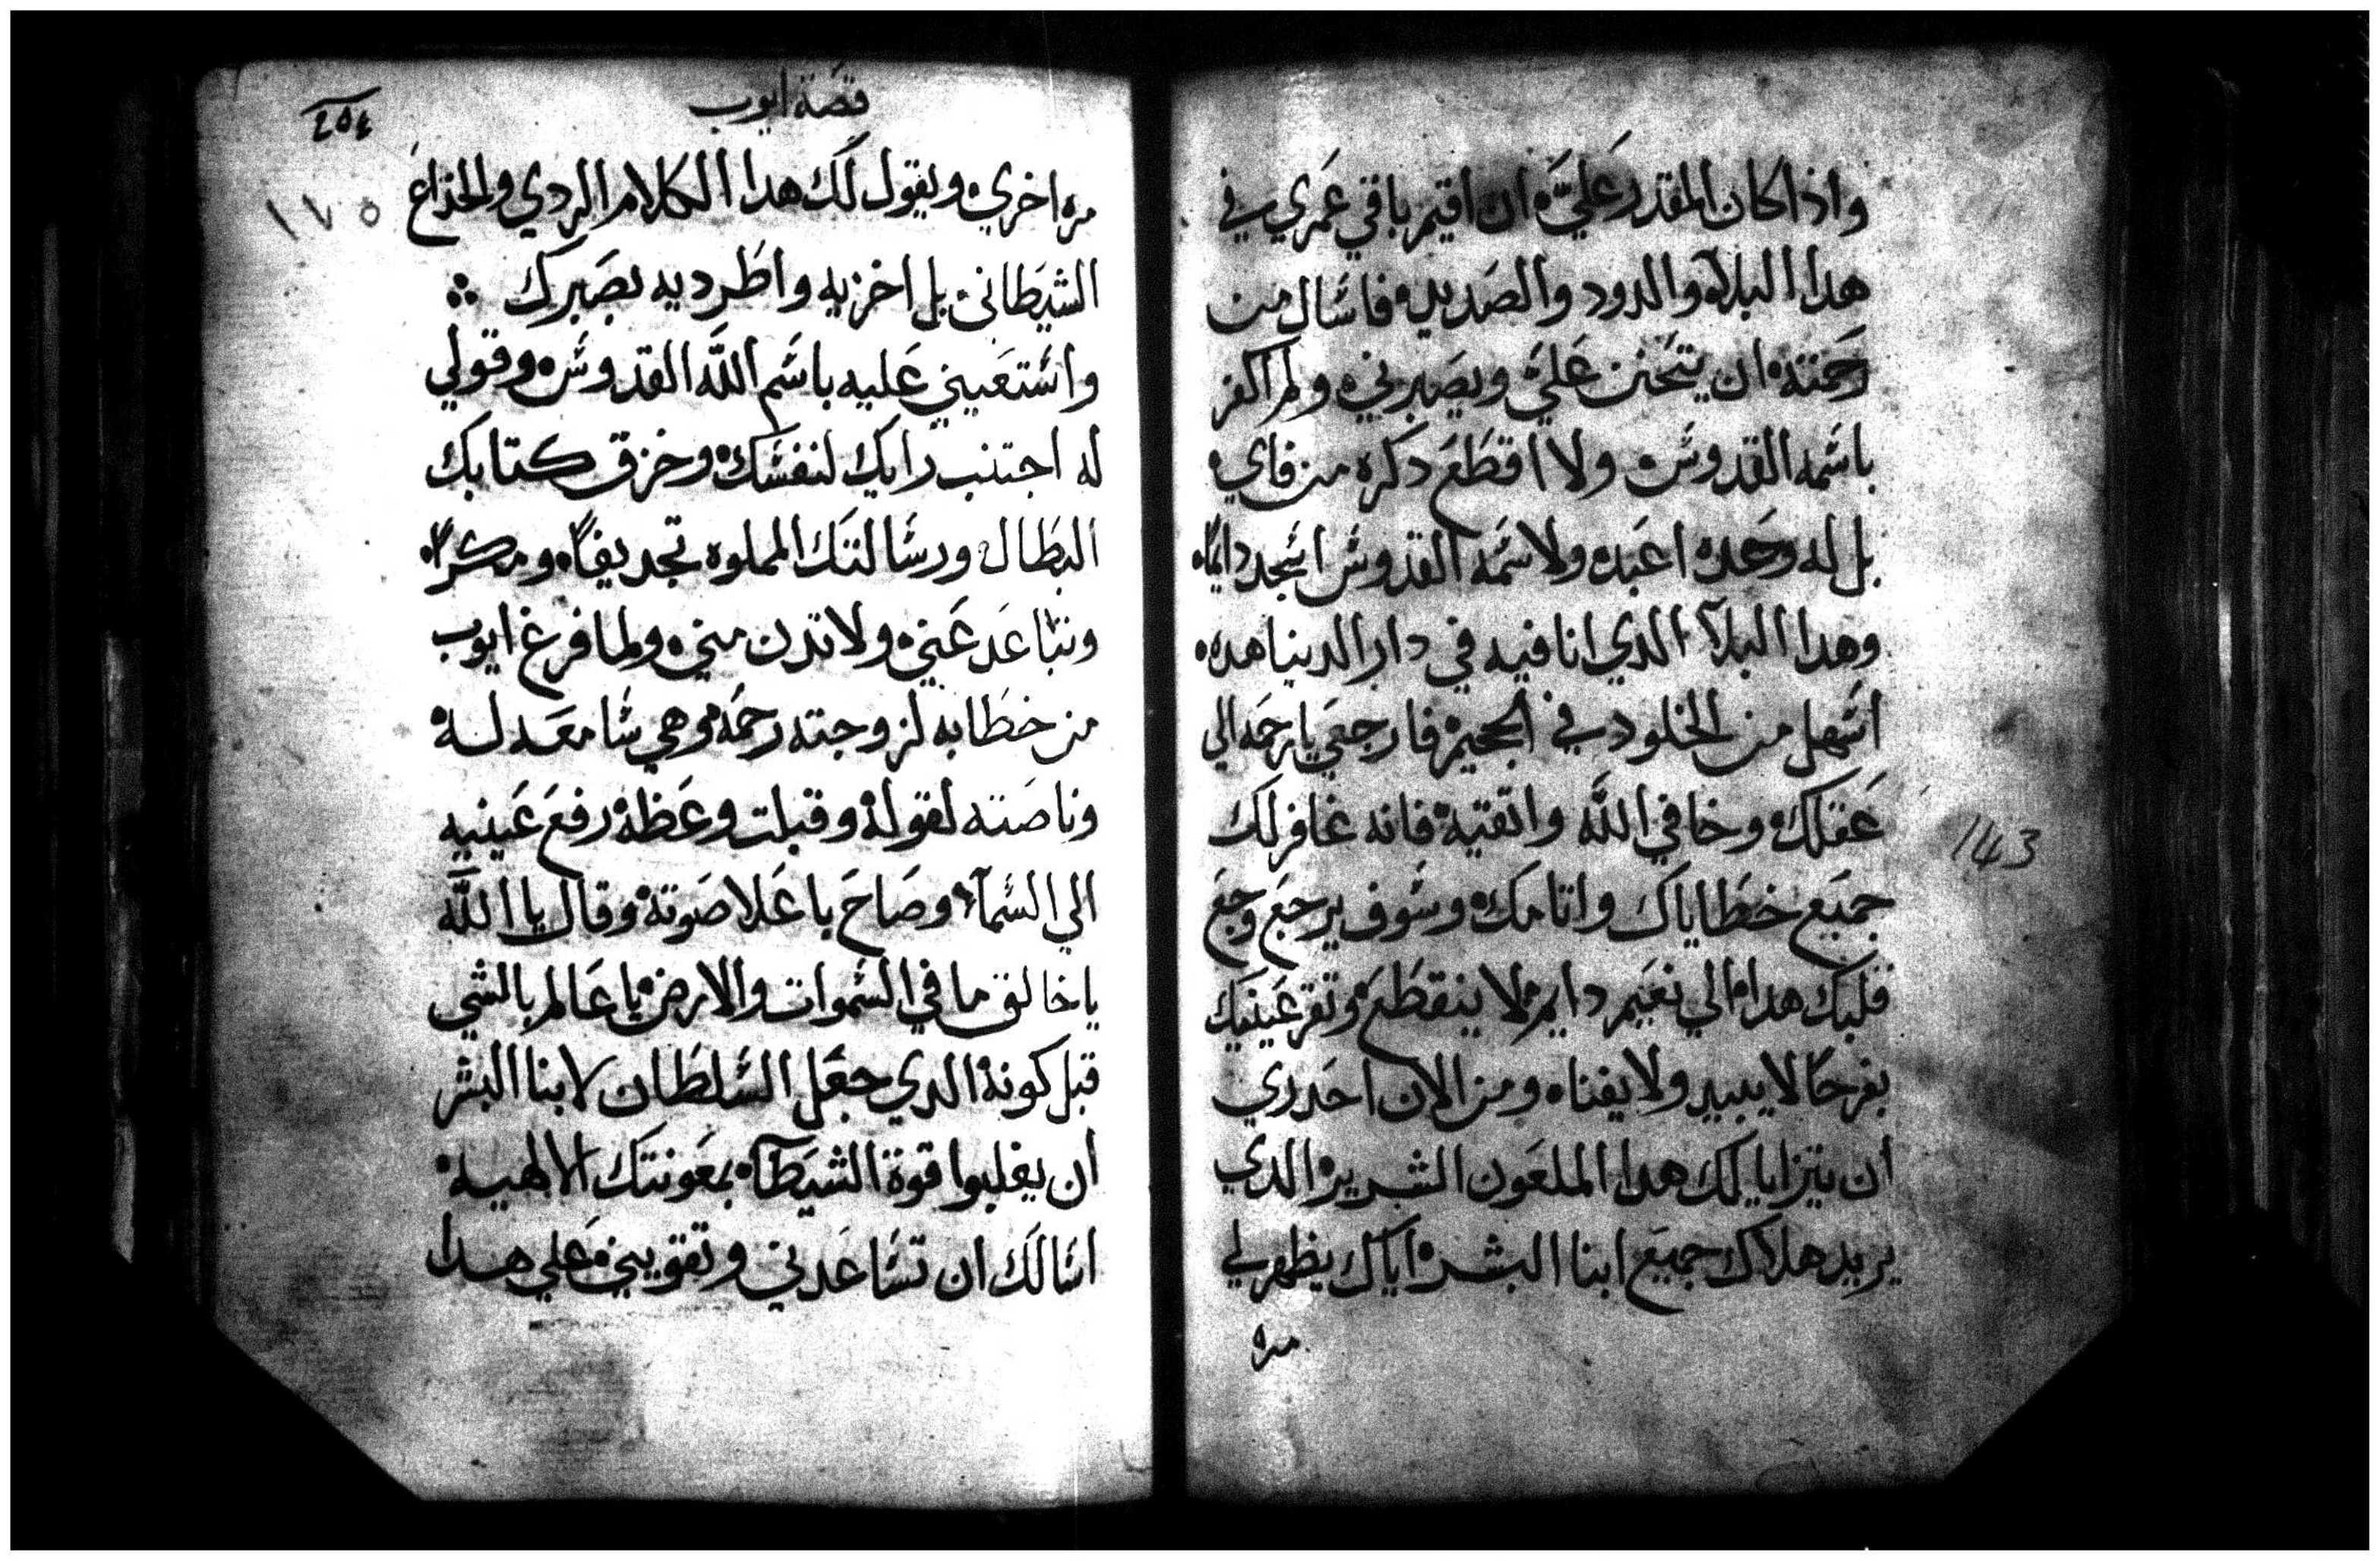 واذا كان المقدر عليَّ ان اقيم باقي عمري في
هدا البلاء والدود والصديد فاسال من
رحمته ان يتحنن عليَّ ويصبرني ولم اكفر
باسمه القدوس ولا اقطع دكره من فاي
بل له وحده اعبد ولاسمه القدوس اسجد دايمًا
وهدا البلآ الدي انا فيه في دار الدينا هده
اسهل من الخلود في الجحيم فارجعي يا رحمه الي
عقلك وخافي الله واتقيه فانه غافر لك
جميع خطاياك واتامك وسوف يرجع وجع
قلبك هدا الي نعيم دايم لا ينقطع وتقر عينيك
بفرحًا لا يبيد ولا يفناه ومن الان احدري
ان يتزايا لك هدا الملعون الشرير الدي
يريد هلاك جميع ابنا البشر اياك يظهر لي
مره
143
قصة ايوب
٢٥٤
١٧٥
مره اخري ويقول لك هدا الكلام الردي والخداع
الشيطاني بل اخزيه واطرديه بصبرك
واستعيني عليه باسم الله القدوس وقولي
له اجتنب رايك لنفسك وخزق كتابك
البطال ورسالتك المملوه تجديفًا ومكرًا
وتباعد عني ولا تدن مني ولما فرغ ايوب
من خطابه لزوجته رحمه وهي سامعه له
وناصته لقوله وقبلت وعظه رفع عينيه
الي السمآء وصاح باعلا صوته وقال يا الله
يا خالق ما في السموات والارض يا عالم بالشي
قبل كونه الدي جعل السلطان لابنا البشر
ان يغلبوا قوة الشيطان بمعونتك الالهيه
اسالك ان تساعدني وتقويني علي هدا